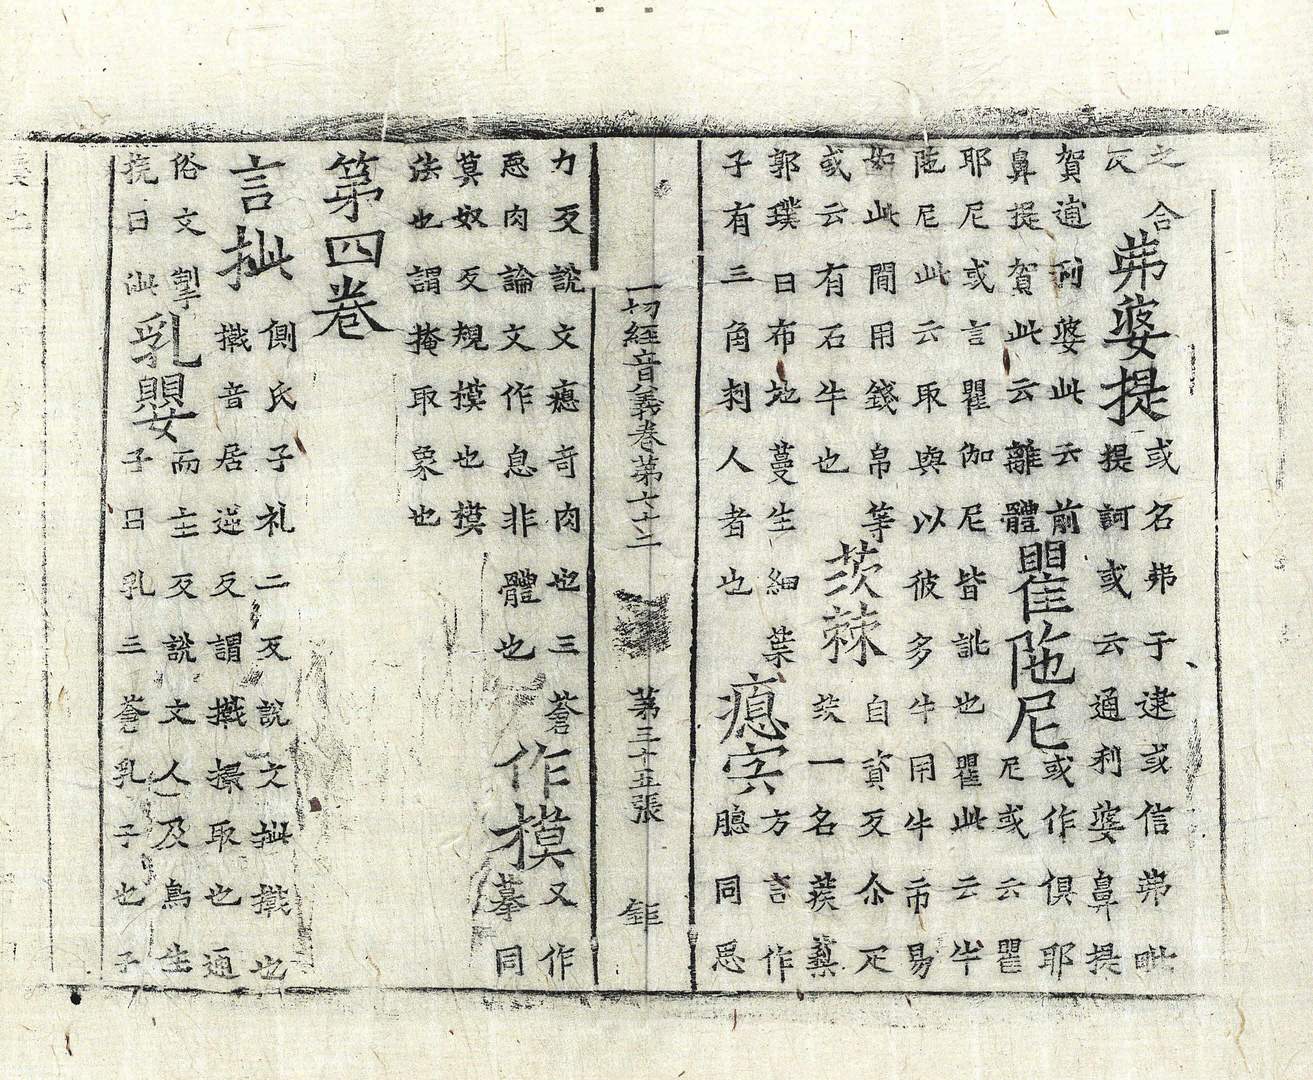 之合
反
茀婆提
或名茀于逮或信茀毗
提訶或云通利婆鼻提
賀逋利婆此云前
鼻提賀此云離體
瞿陁尼
或作俱耶
尼或云瞿
耶尼或言瞿伽尼皆訛也瞿此云牛
陁尼此云取與以彼多牛用牛市易
如此間用錢帛等
或云有石牛也
茨棘
自資反尒疋
茨一名蒺蔾
郭璞曰布地蔓生細葉
子有三角刺人者也
瘜宍
方言作
䐖同思
一切經音義卷第七十二 第三十五張 鉅
力反說文瘜奇肉也三蒼
惡肉論文作息非體也
作摸
又作
摹同
莫奴反規模也模
法也謂掩取象也
第四卷
言㧗
側氏子礼二反說文㧗㩴也
㩴音居逆反謂㩴撮取也通
俗文掣
挽曰㧗
乳嬰
而主反說文人及鳥生
子曰乳三蒼乳子也子